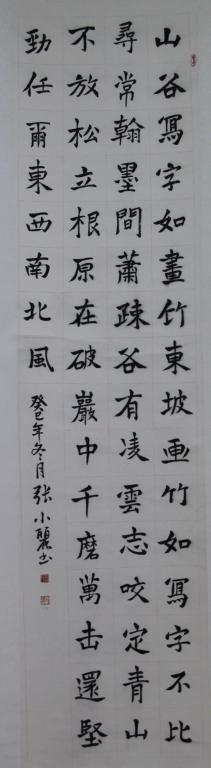 山谷寫字如畫竹東坡画竹如寫字不比
尋常翰墨間蕭疎谷有凌雲志咬定青山
不放松立根原在破巖中千磨萬击還堅
勁任爾東西南北風
癸巳年冬月張小麗书